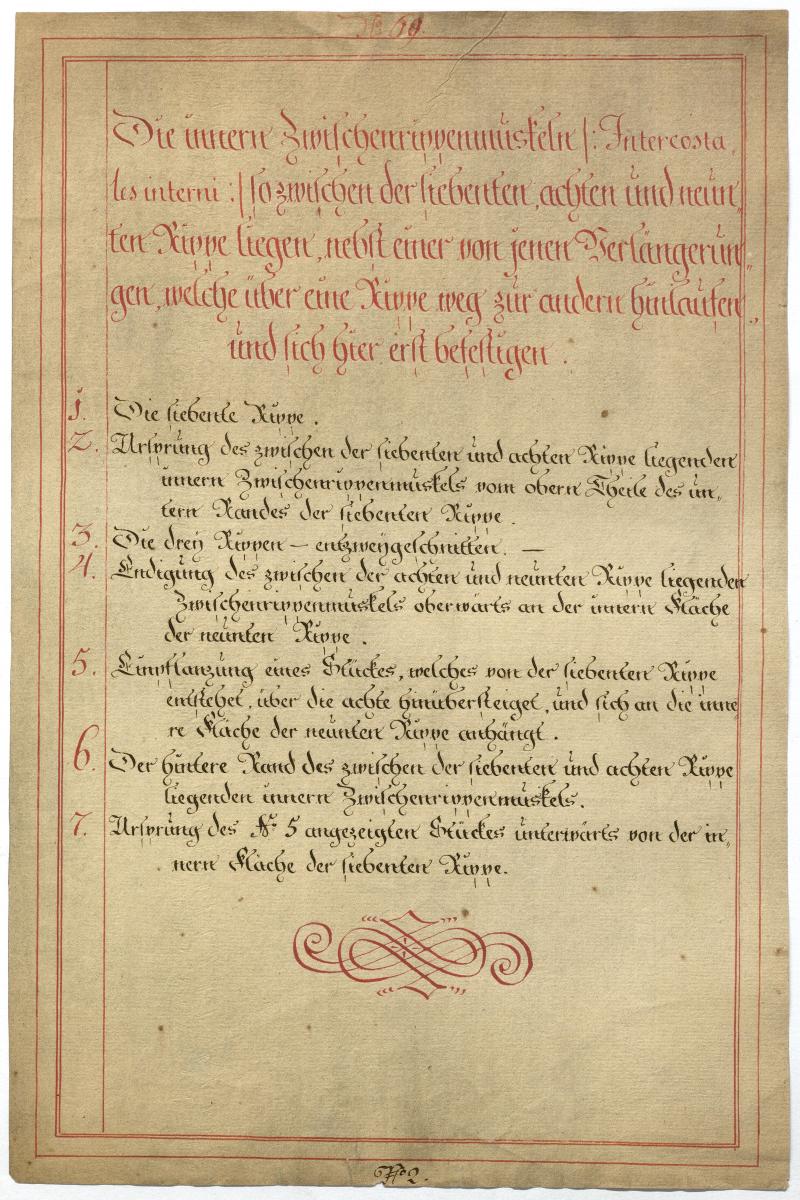 No 69.
Die innern Zwischenrippenmuskeln /: Intercosta„
les interni :/ so zwischen der siebenten, achten und neun„
ten Rippe liegen, nebst einer von jenen Verlängerun„
gen, welche über eine Rippe weg zur andern hinlaufen,
und sich hier erst befestigen.
1. Die siebente Rippe.
2. Ursprung des zwischen der siebenten und achten Rippe liegenden
innern Zwischenrippenmuskels vom obern Theile des un„
tern Randes der siebenten Rippe.
3. Die drey Rippen — entzweygeschnitten. —
4. Endigung des zwischen der achten und neunten Rippe liegenden
Zwischenrippenmuskels oberwärts an der innern Fläche
der neunten Rippe.
5. Einpflanzung eines Stückes, welches von der siebenten Rippe
entstehet, über die achte hinübersteiget, und sich an die inne
re Fläche der neunten Rippe anhängt.
6. Der hintere Rand des zwischen der siebenten und achten Rippe
liegenden innern Zwischenrippenmuskels.
7. Ursprung des No 5 angezeigten Stückes unterwärts von der in„
nern Fläche der siebenten Rippe.
No 2.